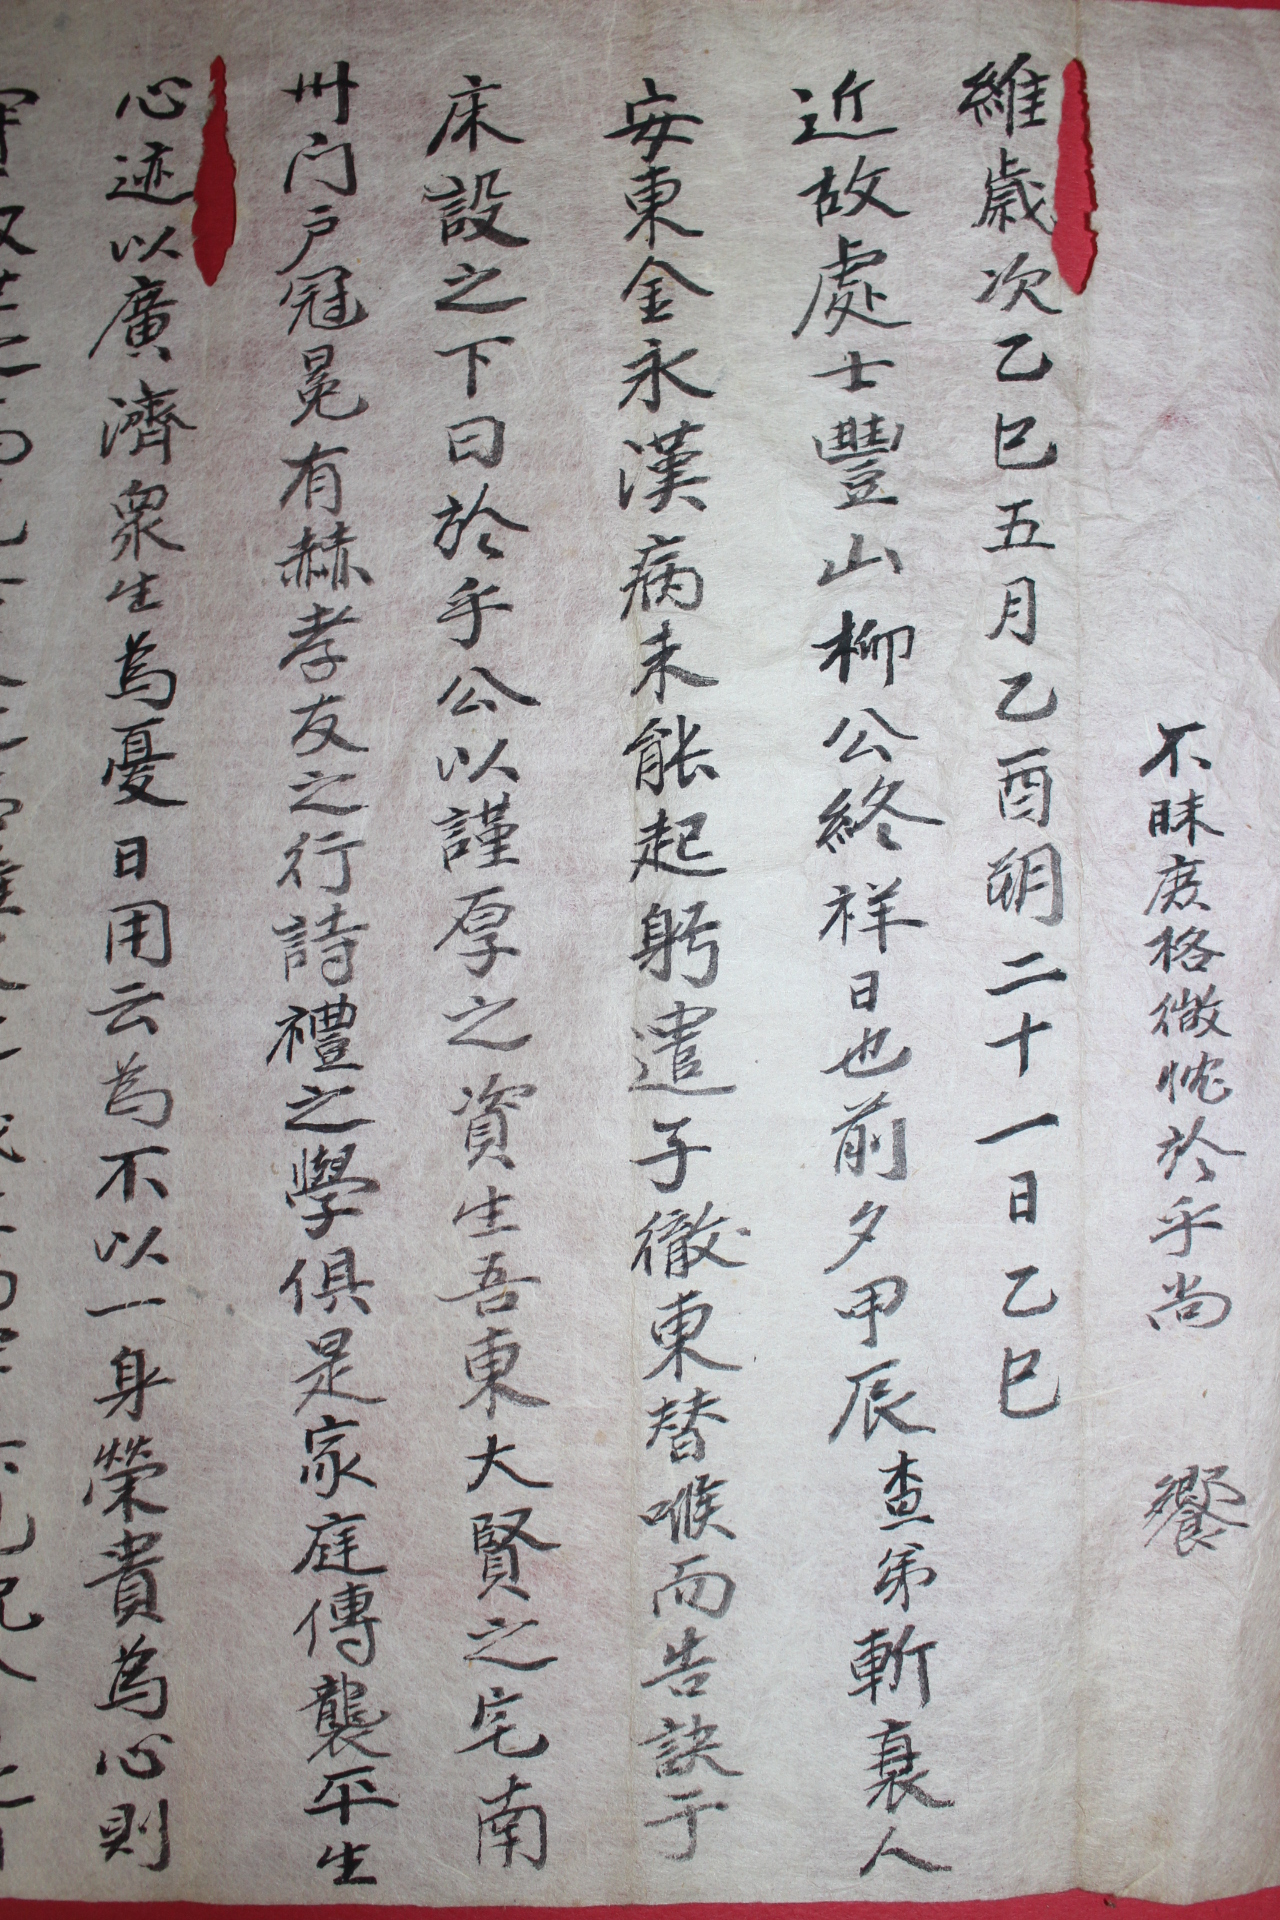 不昧庶格微忱於乎尚 饗
維歲次乙巳五月乙酉朔二十一日乙巳
近故處士豐山柳公終祥日也前夕甲辰查弟斬衰人
安東金永漢病未能起躬遣子徹東替喉而告訣于
床設之下曰於乎公以謹厚之資生吾東大賢之宅南
州门户冠冕有赫孝友之行詩禮之學俱是家庭傳襲平生
心迹以廣濟衆生為憂日用云為不以一身榮貴為心則